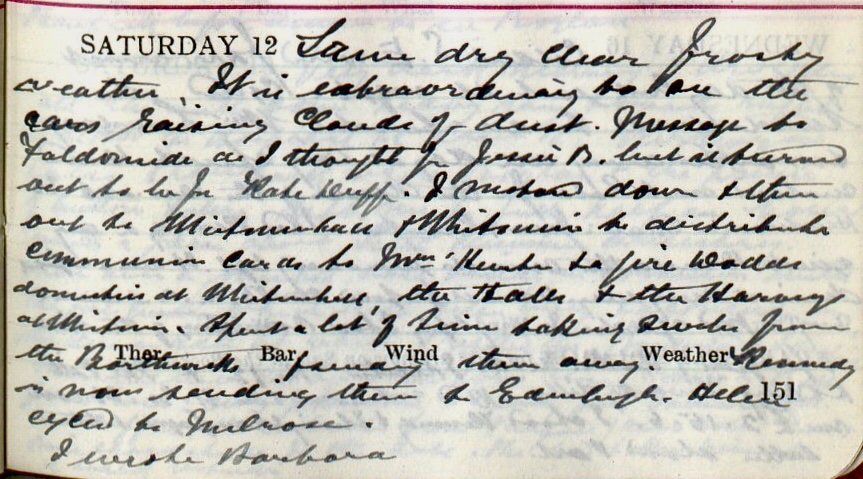 SATURDAY 12 Same dry clear frosty
weather, It is extraordinary to see the
cars raising clouds of dust. Message to
Faldonside as I thought for Jessie B. but it turned
out to be for Kate Duff. I motored down & then
out to & to distribute
communion cards to
domestics at the Halls & the Harveys
at Spent a lot of time taking from
the Borthwicks sending them away. Kennedy
Ther Bar Wind Weather
is now sending them to Edinburgh. Helen
151
cycled to Melrose.
I wrote Barbara